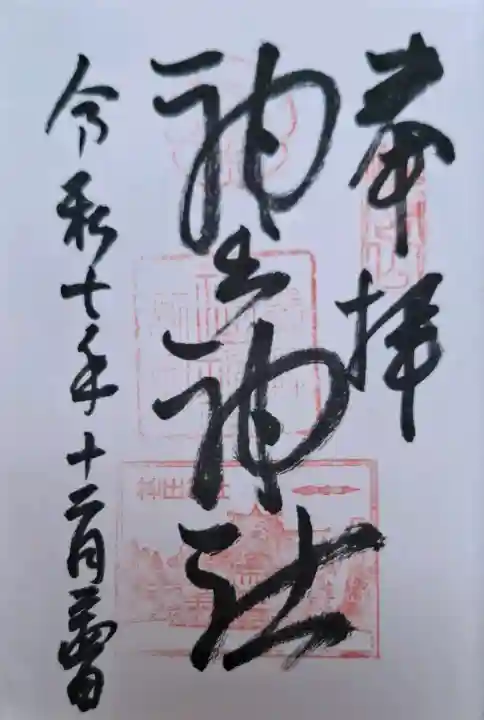 奉拝
神出神社
令和七年十二月 日
神出神社